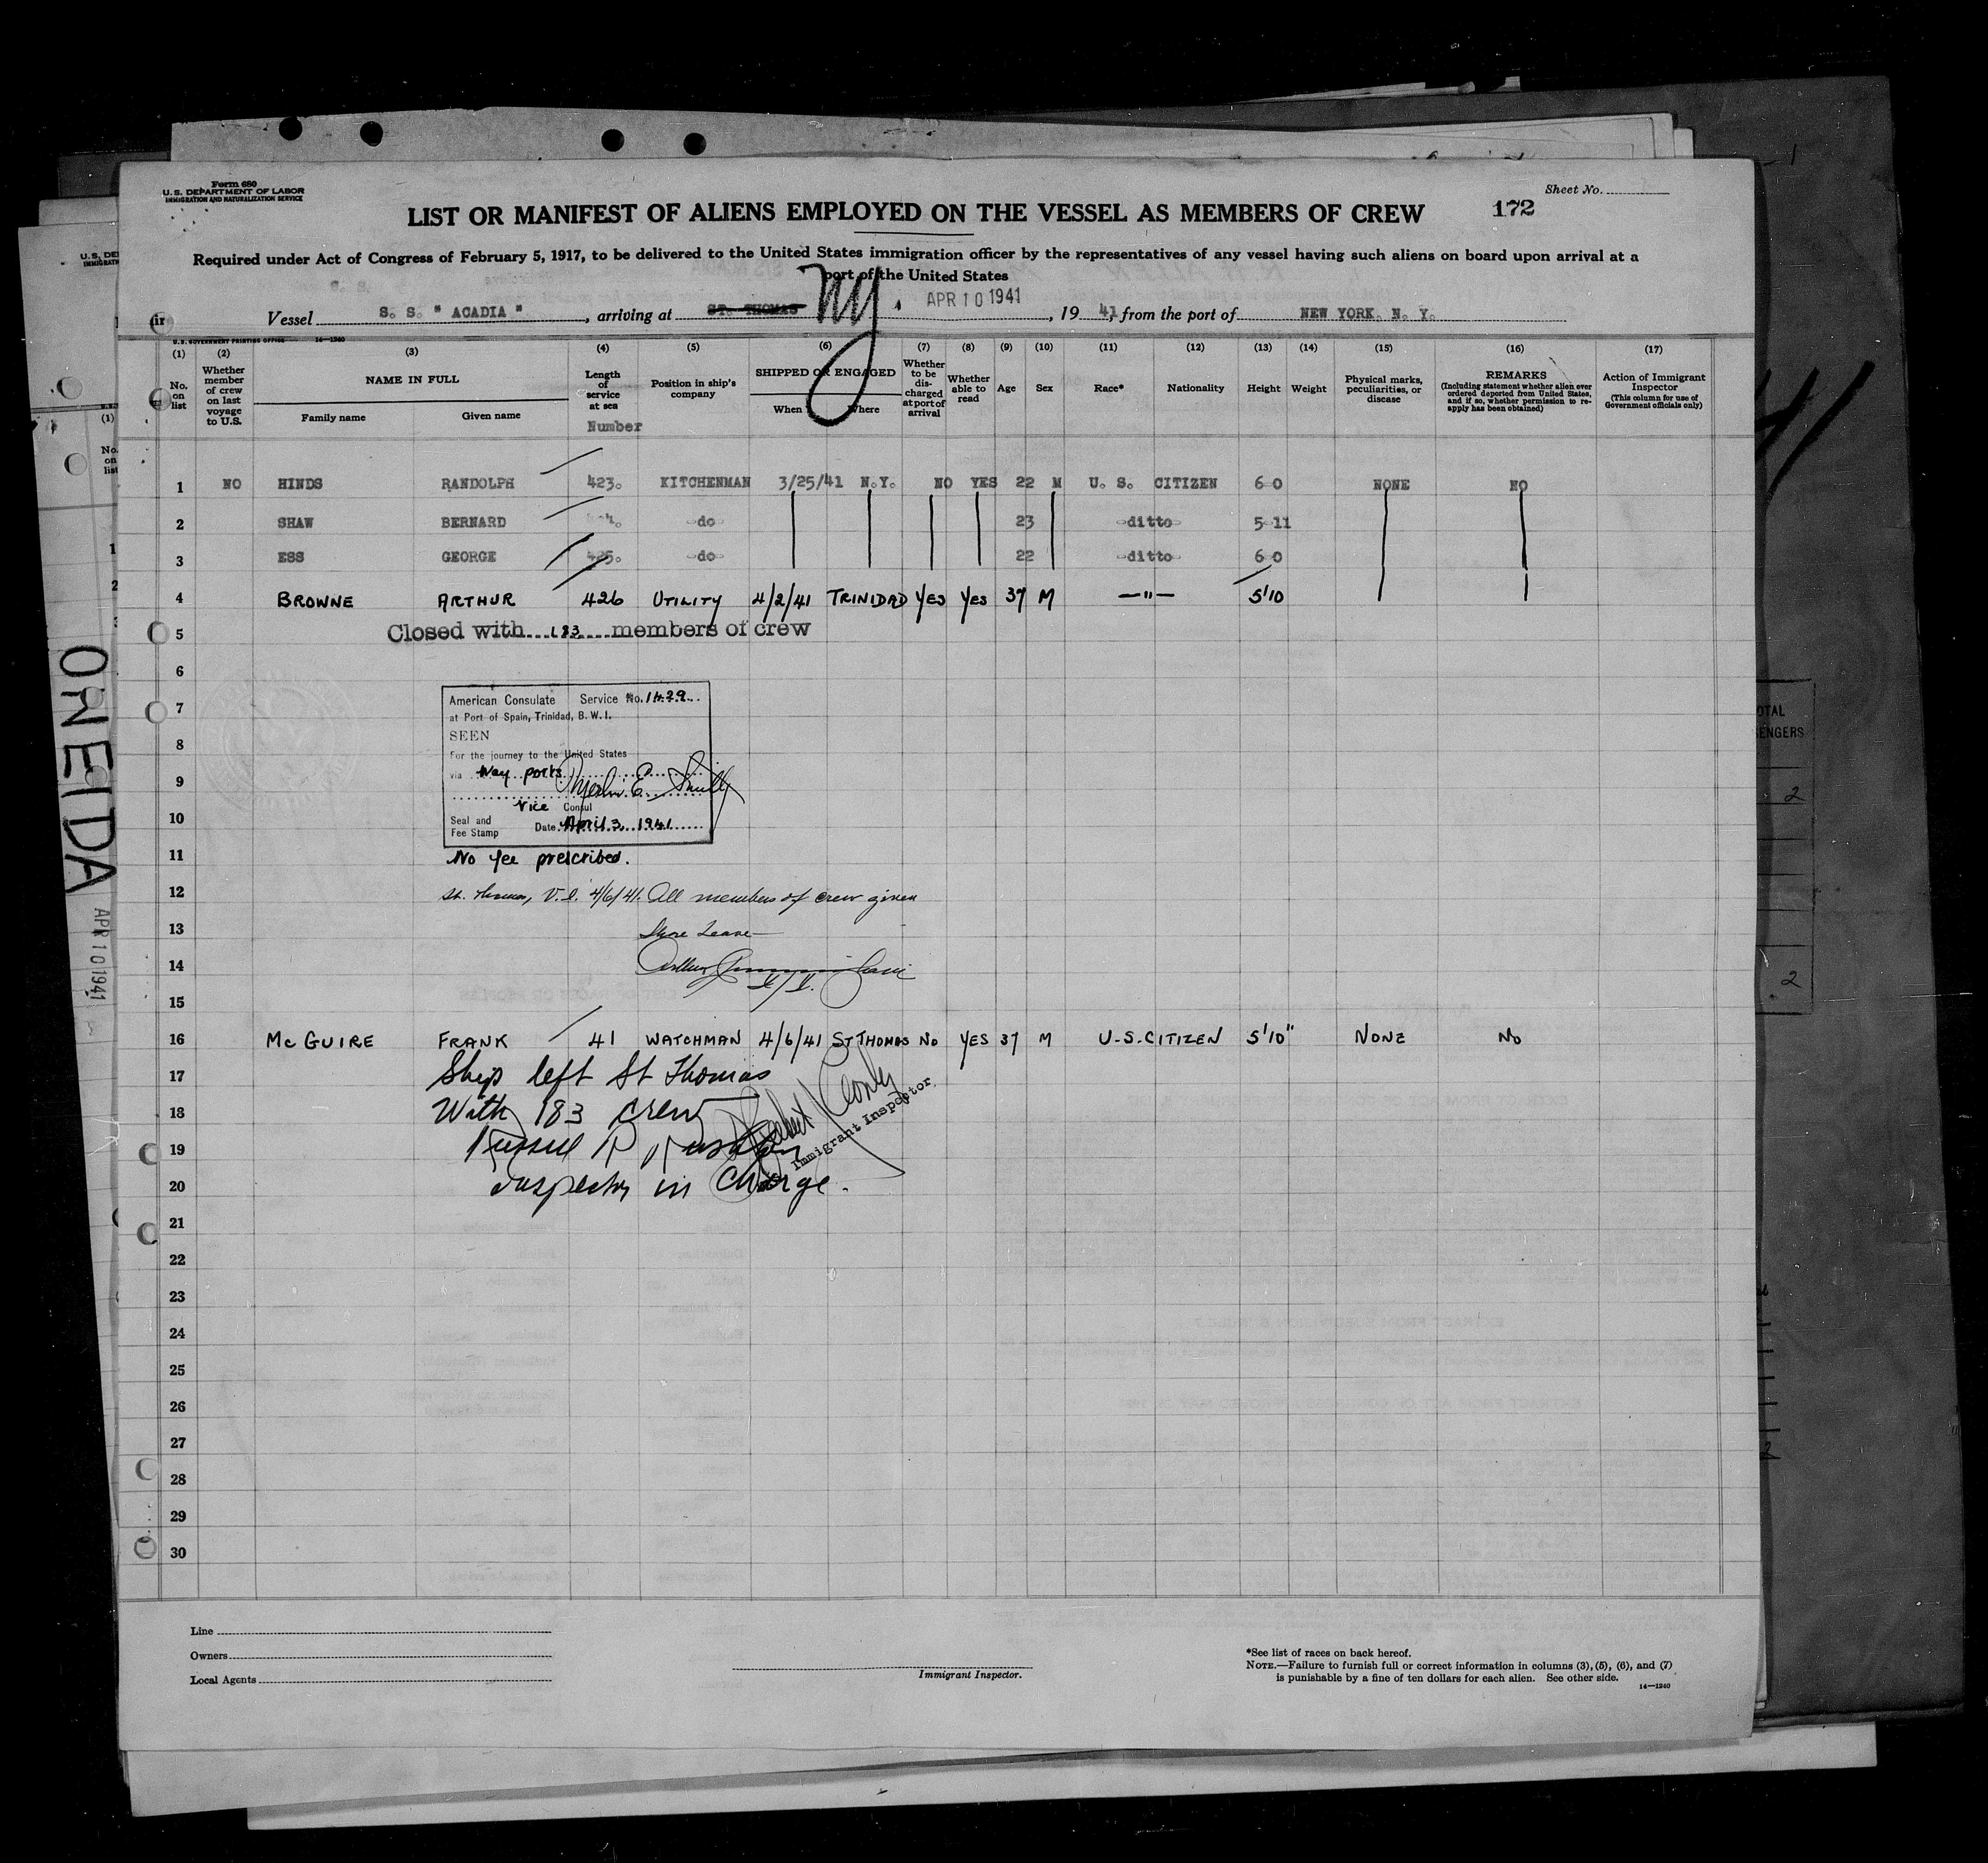 Form 680
U. S. DEPARTMENT OF LABOR
IMMIGRATION AND NATURALIZATION SERVICE
Sheet No.
172
LIST OR MANIFEST OF ALIENS EMPLOYED ON THE VESSEL AS MEMBERS OF CREW
Required under Act of Congress of February 5, 1917, to be delivered to the United States immigration officer by the representatives of any vessel having such aliens on board upon arrival at a
port of the United States
Vessel S. S. " ACADIA ", arriving at ST. THOMAS NY. APR 10 1941, 19 41, from the port of NEW YORK. N. Y.
U. S. GOVERNMENT PRINTING OFFICE 14—1240
(1) (2) (3) (4) (5) (6) (7) (8) (9) (10) (11) (12) (13) (14) (15) (16) (17)
No. on list
Whether member of crew on last voyage to U.S.
NAME IN FULL
Family name Given name
Length of service at sea
Number
Position in ship's company
SHIPPED OR ENGAGED
When Where
Whether to be discharged at port of arrival
Whether able to read
Age
Sex
Race*
Nationality
Height
Weight
Physical marks, peculiarities, or disease
REMARKS
(Including statement whether alien ever ordered deported from United States, and if so, whether permission to re-apply has been obtained)
Action of Immigrant Inspector
(This column for use of Government officials only)
1 NO HINDS RANDOLPH 423. KITCHENMAN 3/25/41 N.Y. NO YES 22 M U. S. CITIZEN 6-0 NONE NO
2 SHAW BERNARD -do- 23 -ditto- 5-11
3 ESS GEORGE 425. -do- 22 -ditto- 6-0
4 BROWNE ARTHUR 426 UTILITY 4/2/41 TRINIDAD YES YES 37 M —"— 5'10
5 Closed with 183 members of crew
6
7
8
9
10
11
12
13
14
15
American Consulate Service No. 1429
at Port of Spain, Trinidad, B. W. I.
SEEN
For the journey to the United States
via Way ports
Vice Consul
Seal and
Fee Stamp Date April 3, 1941
No fee prescribed.
St. Thomas, V.I. 4/6/41. All members of crew given
Shore Leave—
16 McGUIRE FRANK 41 WATCHMAN 4/6/41 ST THOMAS NO YES 37 M U.S. CITIZEN 5'10" NONE NO
17 Ship left St Thomas
18 With 183 crew
19 Immigrant Inspector
20 Inspector in Charge.
21
22
23
24
25
26
27
28
29
30
Line
Owners
Local Agents
Immigrant Inspector.
*See list of races on back hereof.
NOTE.—Failure to furnish full or correct information in columns (3), (5), (6), and (7)
is punishable by a fine of ten dollars for each alien. See other side.
14—1240
ONEIDA
APR 10 1941